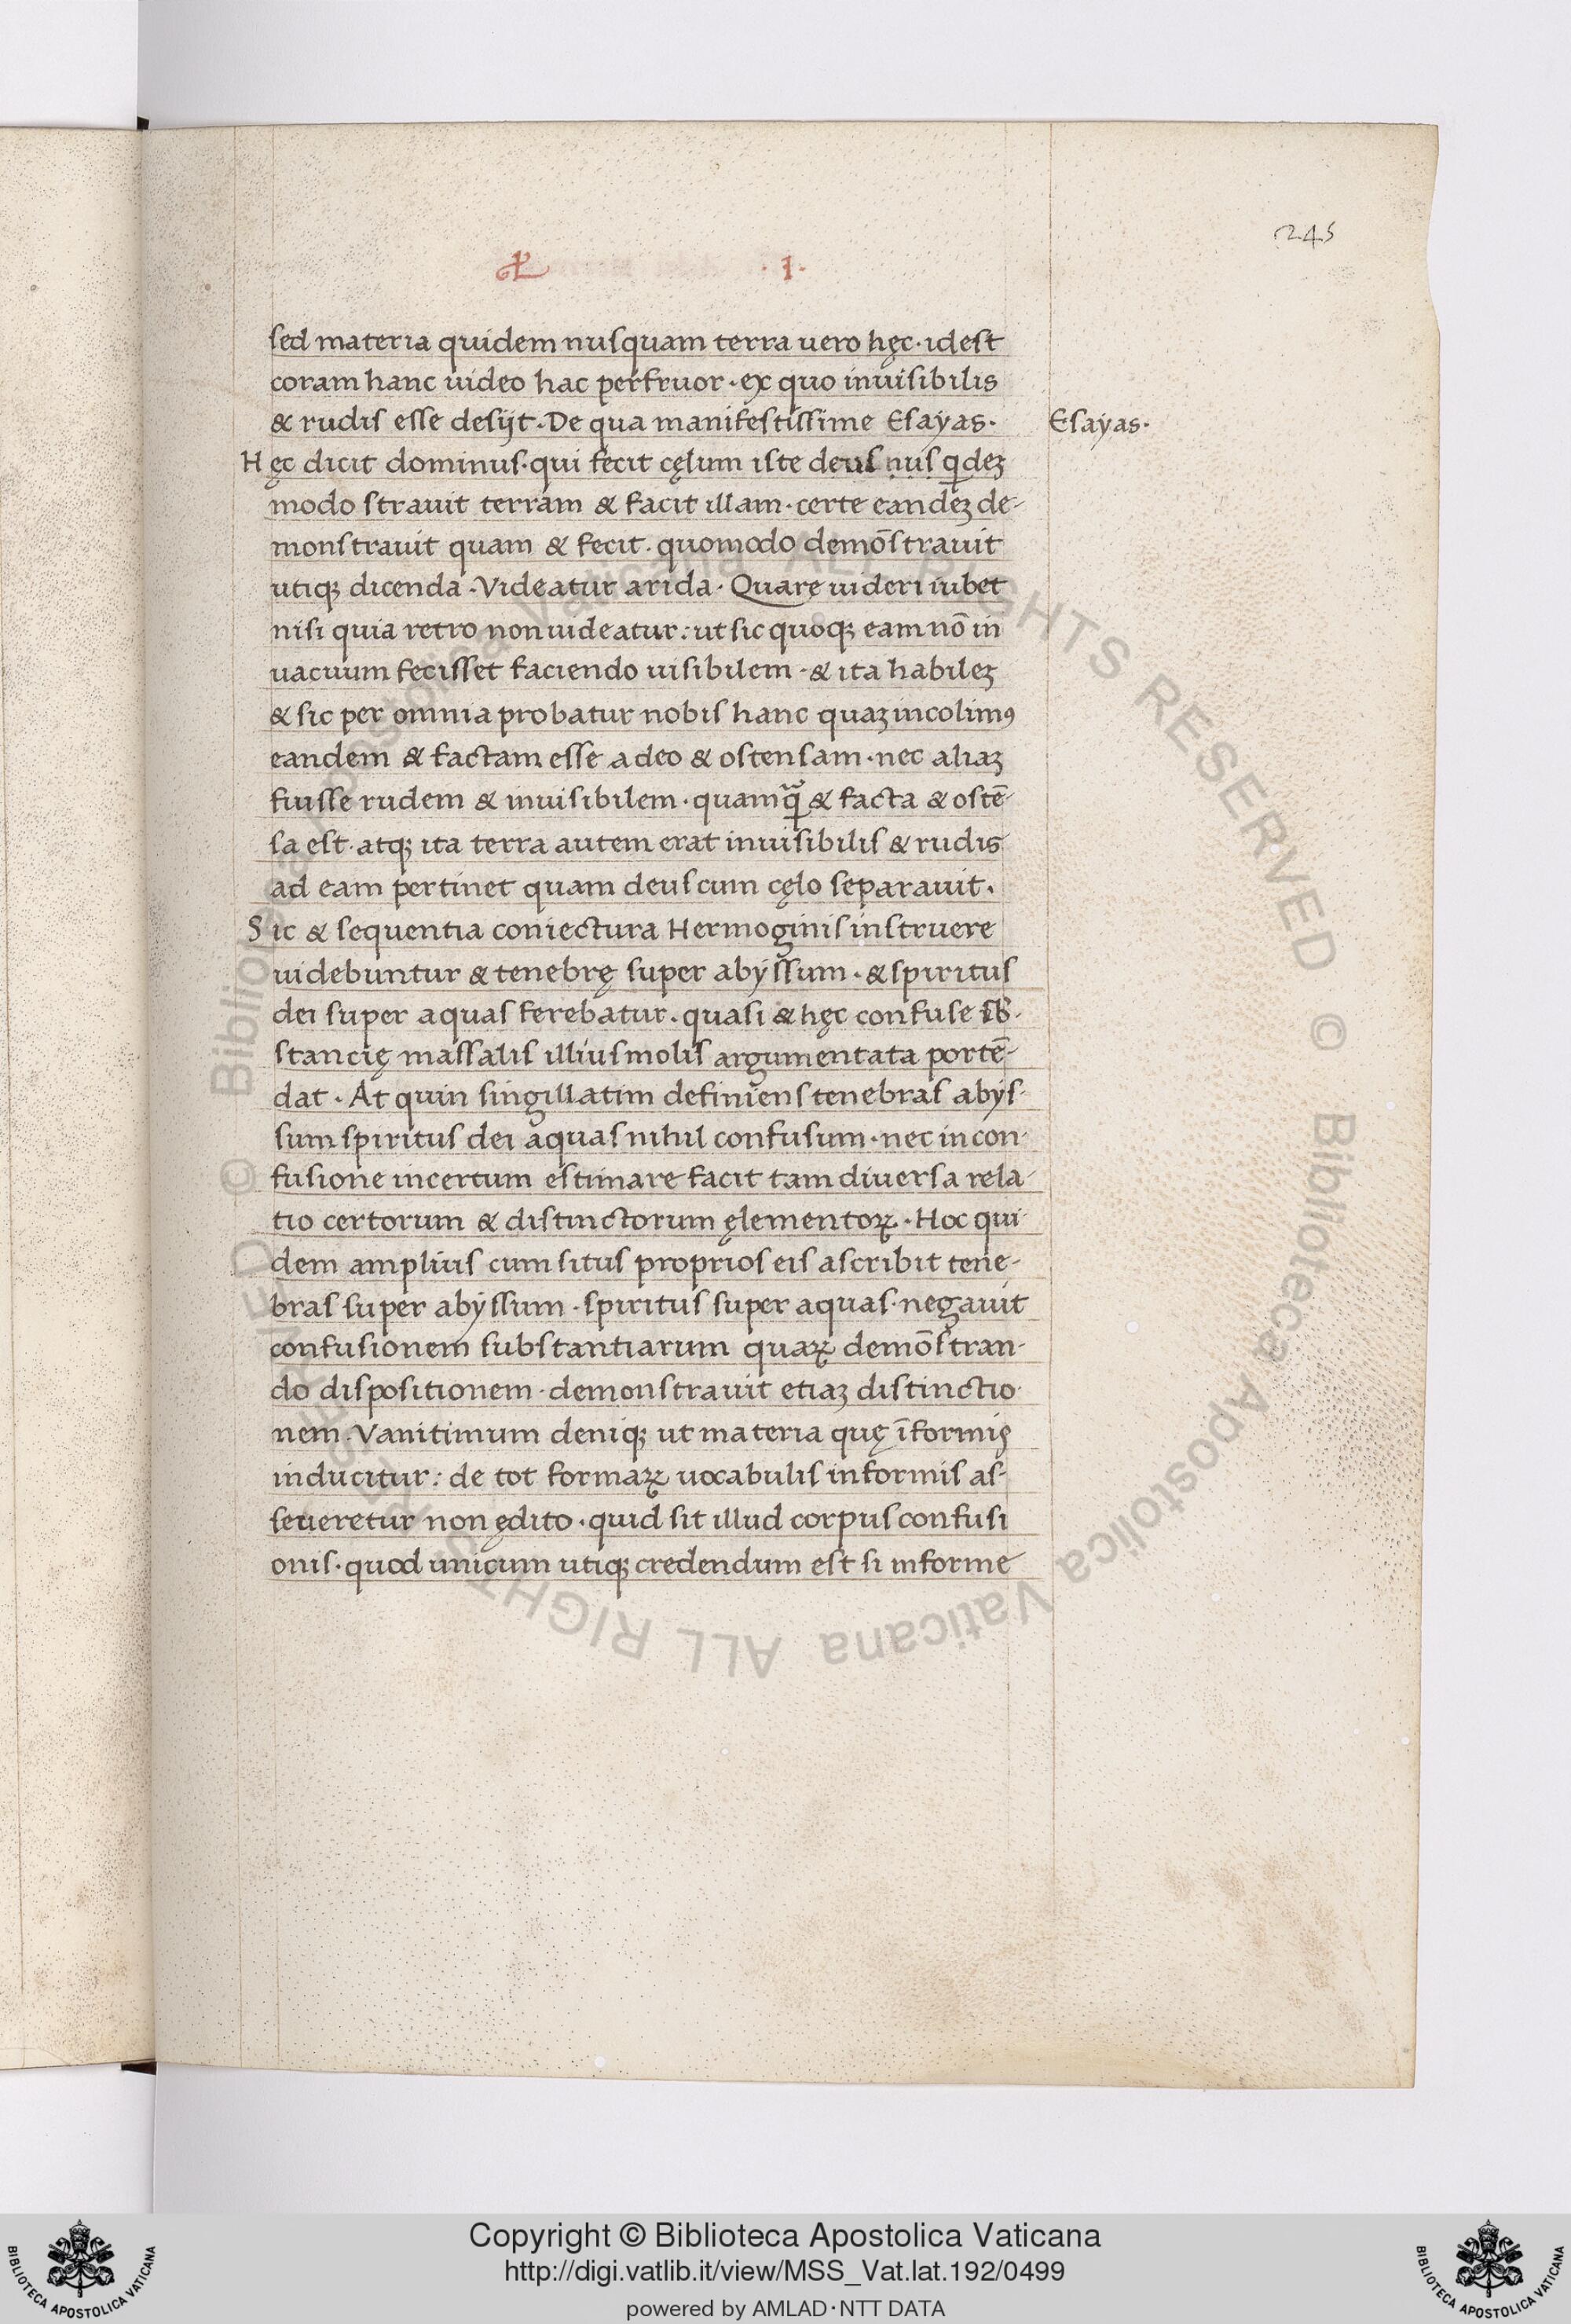 245
· I ·
sed materia quidem nusquam terra uero hęc · idest
coram hanc uideo hac perfruor · ex quo inuisibilis
& rudis esse desijt · De qua manifestissime Esayas ·
Esayas ·
Hęc dicit dominus · qui fecit cęlum iste deus nus qͥdeꝫ
modo strauit terram & facit illam · certe eandeꝫ de-
monstrauit quam & fecit · quomodo demōstrauit
utiqꝫ dicenda · Videatur arida · Quare uideri iubet
nisi quia retro non uideatur : ut sic quoqꝫ eam nō in
uacuum fecisset faciendo uisibilem · & ita habileꝫ
& sic per omnia probatur nobis hanc quaꝫ incolimꝰ
eandem & factam esse a deo & ostensam · nec aliaꝫ
fuisse rudem & inuisibilem · quam & facta & ostē-
sa est · atqꝫ ita terra autem erat inuisibilis & rudis
ad eam pertinet quam deus cum cęlo separauit ·
Sic & sequentia coniectura Hermoginis instruere
uidebuntur & tenebrę super abyssum · & spiritus
dei super aquas ferebatur · quasi & hęc confuse sb-
stancię massalis illius molis argumentata portē-
dat · At quin singillatim definiens tenebras abys-
sum spiritus dei aquas nihil confusum · nec in con-
fusione incertum estimare facit tam diuersa rela-
tio certorum & distinctorum ęlementoꝝ · Hoc qui-
dem amplius cum situs proprios eis ascribit tene-
bras super abyssum · spiritus super aquas · negauit
confusionem substantiarum quaꝝ demōstran-
do dispositionem · demonstrauit etiaꝫ distinctio-
nem · Vanitimum deniqꝫ ut materia quę īformis
inducitur : de tot formaꝝ uocabulis informis as-
seueretur non ędito · quid sit illud corpus confusi
onis · quod unicum utiqꝫ credendum est si informe
© Biblioteca Apostolica Vaticana ALL RIGHTS RESERVED © Biblioteca Apostolica Vaticana ALL RIGHTS RESERVED
BIBLIOTECA APOSTOLICA VATICANA
Copyright © Biblioteca Apostolica Vaticana
http://digi.vatlib.it/view/MSS_Vat.lat.192/0499
powered by AMLAD・NTT DATA
BIBLIOTECA APOSTOLICA VATICANA